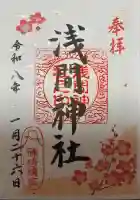 奉拝
浅間神社
令和八年
一月二十六日